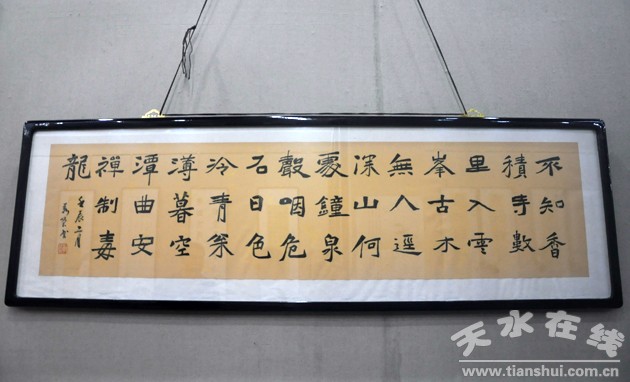 不知香
積寺數
里入雲
峯古木
無人逕
深山何
處鐘泉
聲咽危
石日色
冷青松
薄暮空
潭曲安
禪制毒
龍
壬辰二月
天水在线
www.tianshui.com.cn